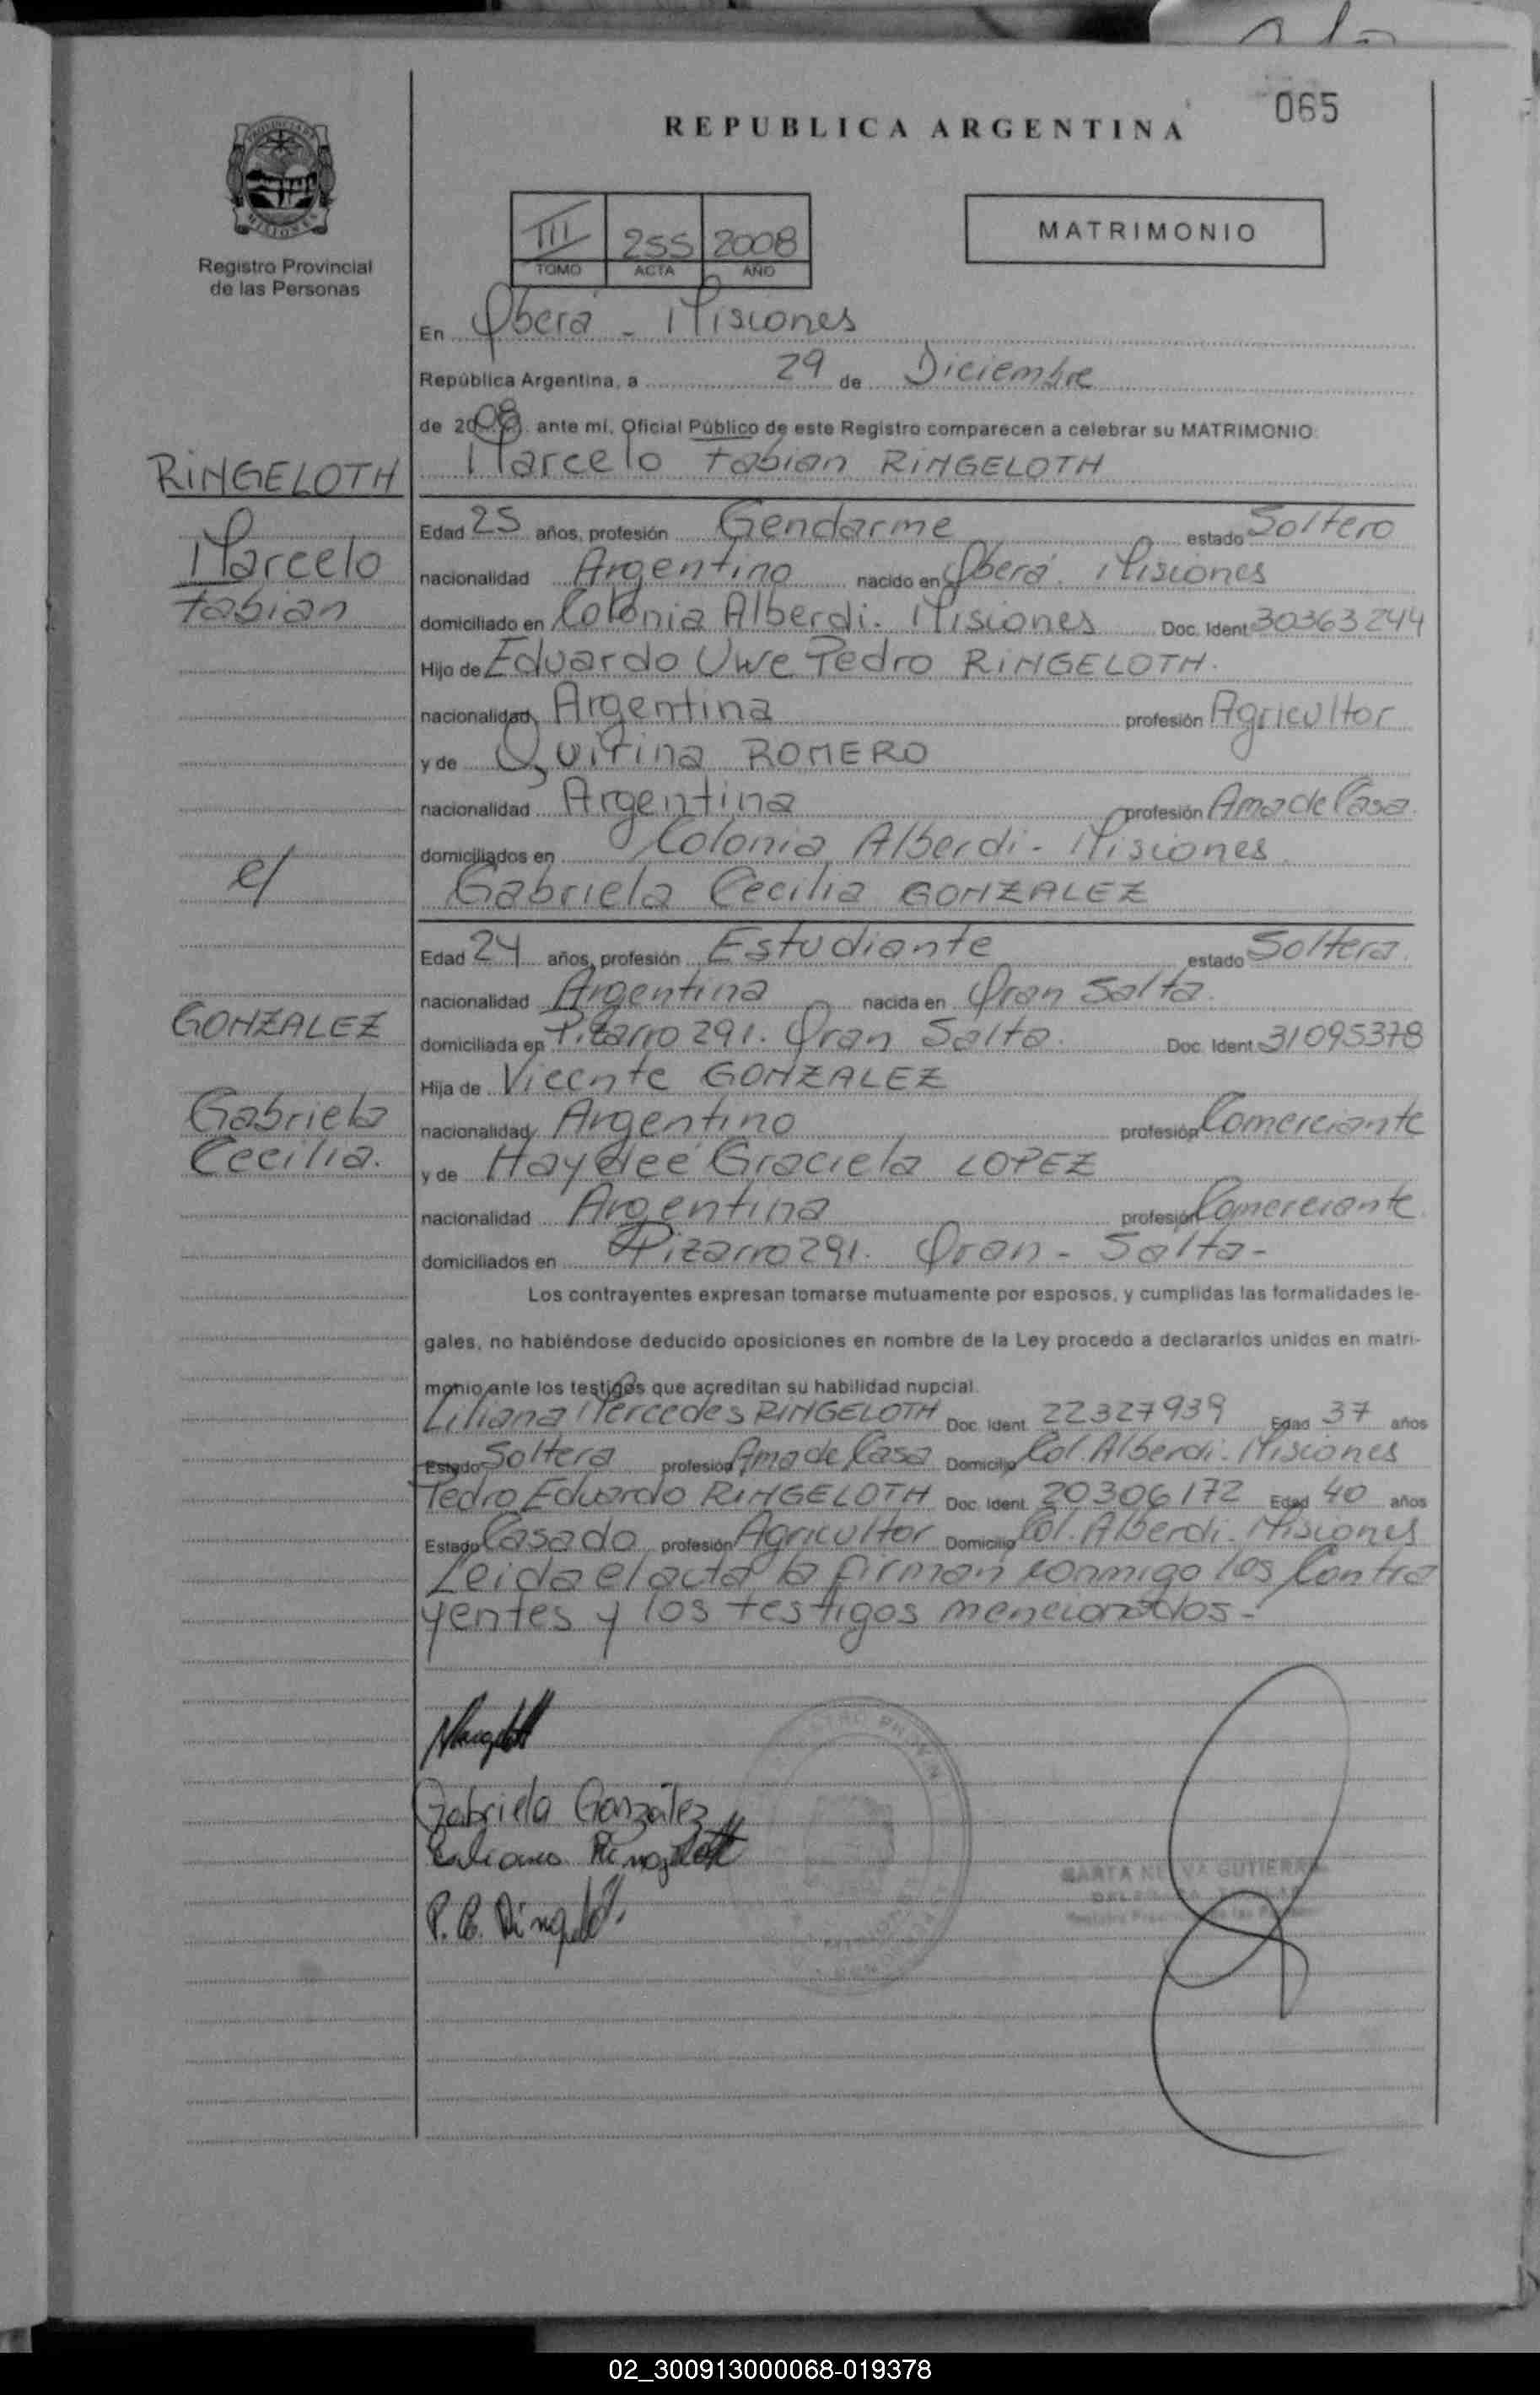 065
REPUBLICA ARGENTINA
PROVINCIA DE
MISIONES
Registro Provincial
de las Personas
III 255 2008
TOMO ACTA AÑO
MATRIMONIO
En Oberá - Misiones
República Argentina, a 29 de Diciembre
de 2008 ante mí, Oficial Público de este Registro comparecen a celebrar su MATRIMONIO:
RINGELOTH
Marcelo Fabian RINGELOTH
Marcelo
Fabian
Edad 25 años, profesión Gendarme estado Soltero
nacionalidad Argentino nacido en Oberá. Misiones
domiciliado en Colonia Alberdi. Misiones Doc. Ident 30363244
Hijo de Eduardo Uwe Pedro RINGELOTH.
nacionalidad Argentina profesión Agricultor
y de Quirina ROMERO
nacionalidad Argentina profesión Ama de Casa.
domiciliados en Colonia Alberdi - Misiones
c/
Gabriela Cecilia GONZALEZ
Edad 24 años, profesión Estudiante estado Soltera.
nacionalidad Argentina nacida en Oran Salta.
GONZALEZ
domiciliada en Pizarro 291. Oran Salta. Doc. Ident. 31095378
Hija de Vicente GONZALEZ
Gabriela
Cecilia.
nacionalidad Argentino profesión Comerciante
y de Haydeé Graciela LOPEZ
nacionalidad Argentina profesión Comerciante
domiciliados en Pizarro 291. Oran - Salta -
Los contrayentes expresan tomarse mutuamente por esposos, y cumplidas las formalidades le-
gales, no habiéndose deducido oposiciones en nombre de la Ley procedo a declararlos unidos en matri-
monio ante los testigos que acreditan su habilidad nupcial.
Liliana Mercedes RINGELOTH Doc. Ident. 22327939 Edad 37 años
Estado Soltera profesión Ama de Casa Domicilio Col. Alberdi. Misiones
Pedro Eduardo RINGELOTH Doc. Ident. 20306172 Edad 40 años
Estado Casado profesión Agricultor Domicilio Col. Alberdi. Misiones
Leida el acta la firman conmigo los Contra
yentes y los testigos mencionados -
Gabriela González
Liliana Ringeloth
P. E. Ringeloth
02_300913000068-019378